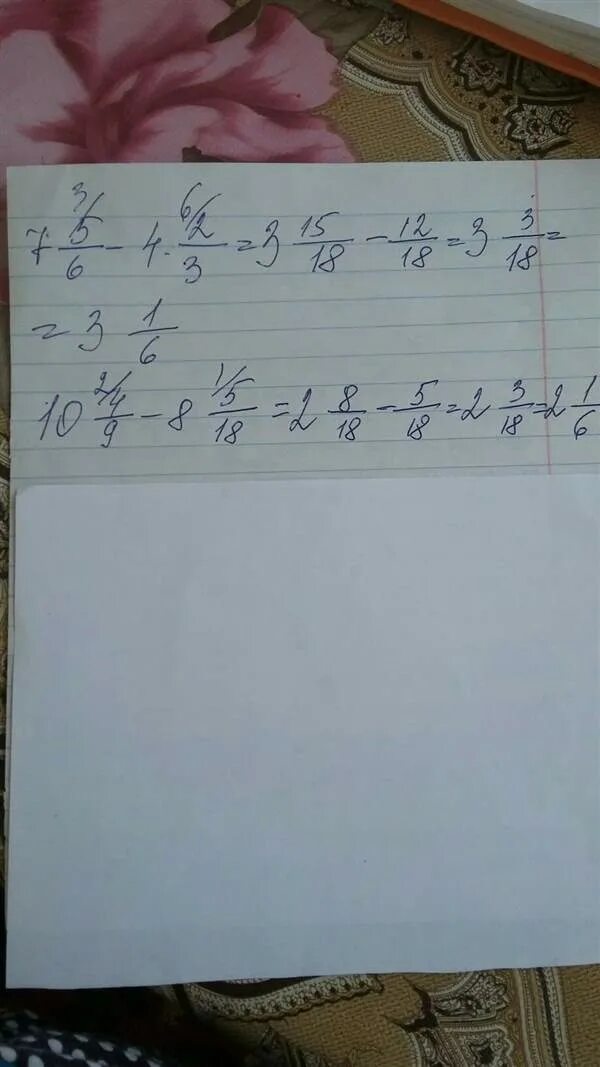 7 ³⁄5/6 - 4 · ⁶⁄2/3 = 3 15/18 - 12/18 = 3 3/18 =
= 3 1/6
10 ²⁄4/9 - 8 ¹⁄5/18 = 2 8/18 - 5/18 = 2 3/18 = 2 1/6